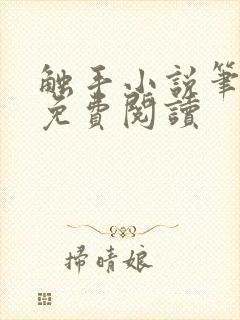 触手小说筆
免費閱讀
掃晴娘